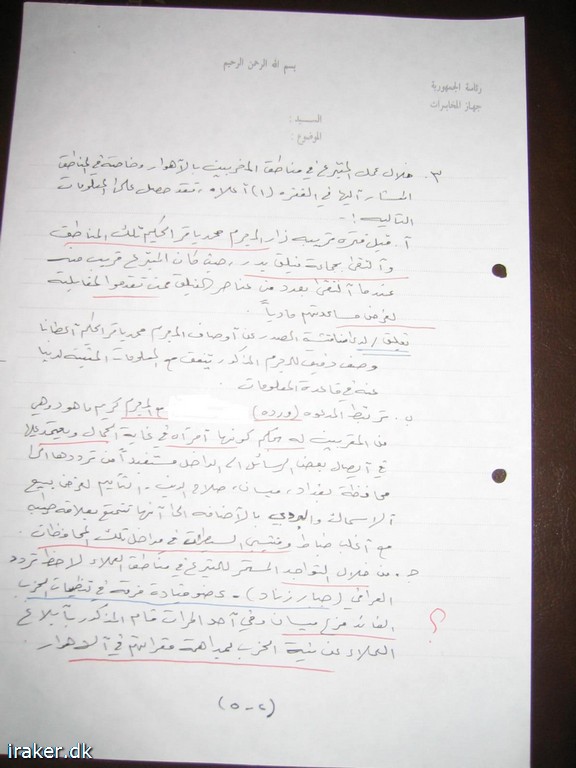 بسم الله الرحمن الرحيم
رئاسة الجمهورية
جهاز المخابرات
السيد :
الموضوع :
٣. خلال عمل المتبرع في مناطق المخربين بالأهوار وخاصة في المناطق
المشار اليها في الفقرة (١) أعلاه، فقد حصل على المعلومات
التالية :-
أ. قبل فترة قريبة زار المجرم محمد باقر الحكيم تلك المناطق
والتقى بجماعة فيلق بدر، حيث كان المتبرع قريب منه
عندما التقى بعدد من عناصر الفيلق ممن تقدموا لمقابلته
لغرض مساعدتهم مادياً.
تعليق / لدى مناقشة المصدر عن أوصاف المجرم محمد باقر الحكيم أعطانا
وصف دقيق للمجرم المذكور يتفق مع المعلومات المتيسرة لدينا
عنه في قاعدة المعلومات.
ب. ترتبط المدعوه (ورده) المجرم كريم ماهود وهي
من المقربين له بحكم كونها أمرأه في غاية الجمال ويعتمد عليها
في أيصال بعض الرسائل الى الداخل مستفيداً من ترددها الى
محافظة بغداد، ميسان، صلاح الدين، التأميم لغرض بيع
الأسماك والبردي بالأضافة الى أنها تتمتع بعلاقة طيبه
مع أغلب ضباط ومفتشي السيطرات في مداخل تلك المحافظات.
جـ. من خلال التواجد المستمر للمتبرع في مناطق العملاء لاحظ تردد
العراقي (جبار زناد) - عضو قيادة فرقة في تنظيمات الحزب
القائد فرع ميسان وفي أحد المرات قام المذكور بأبلاغ
العملاء عن نية الحزب بمداهمة مقراتهم في الأهوار.
؟
(٢-٥)
iraker.dk